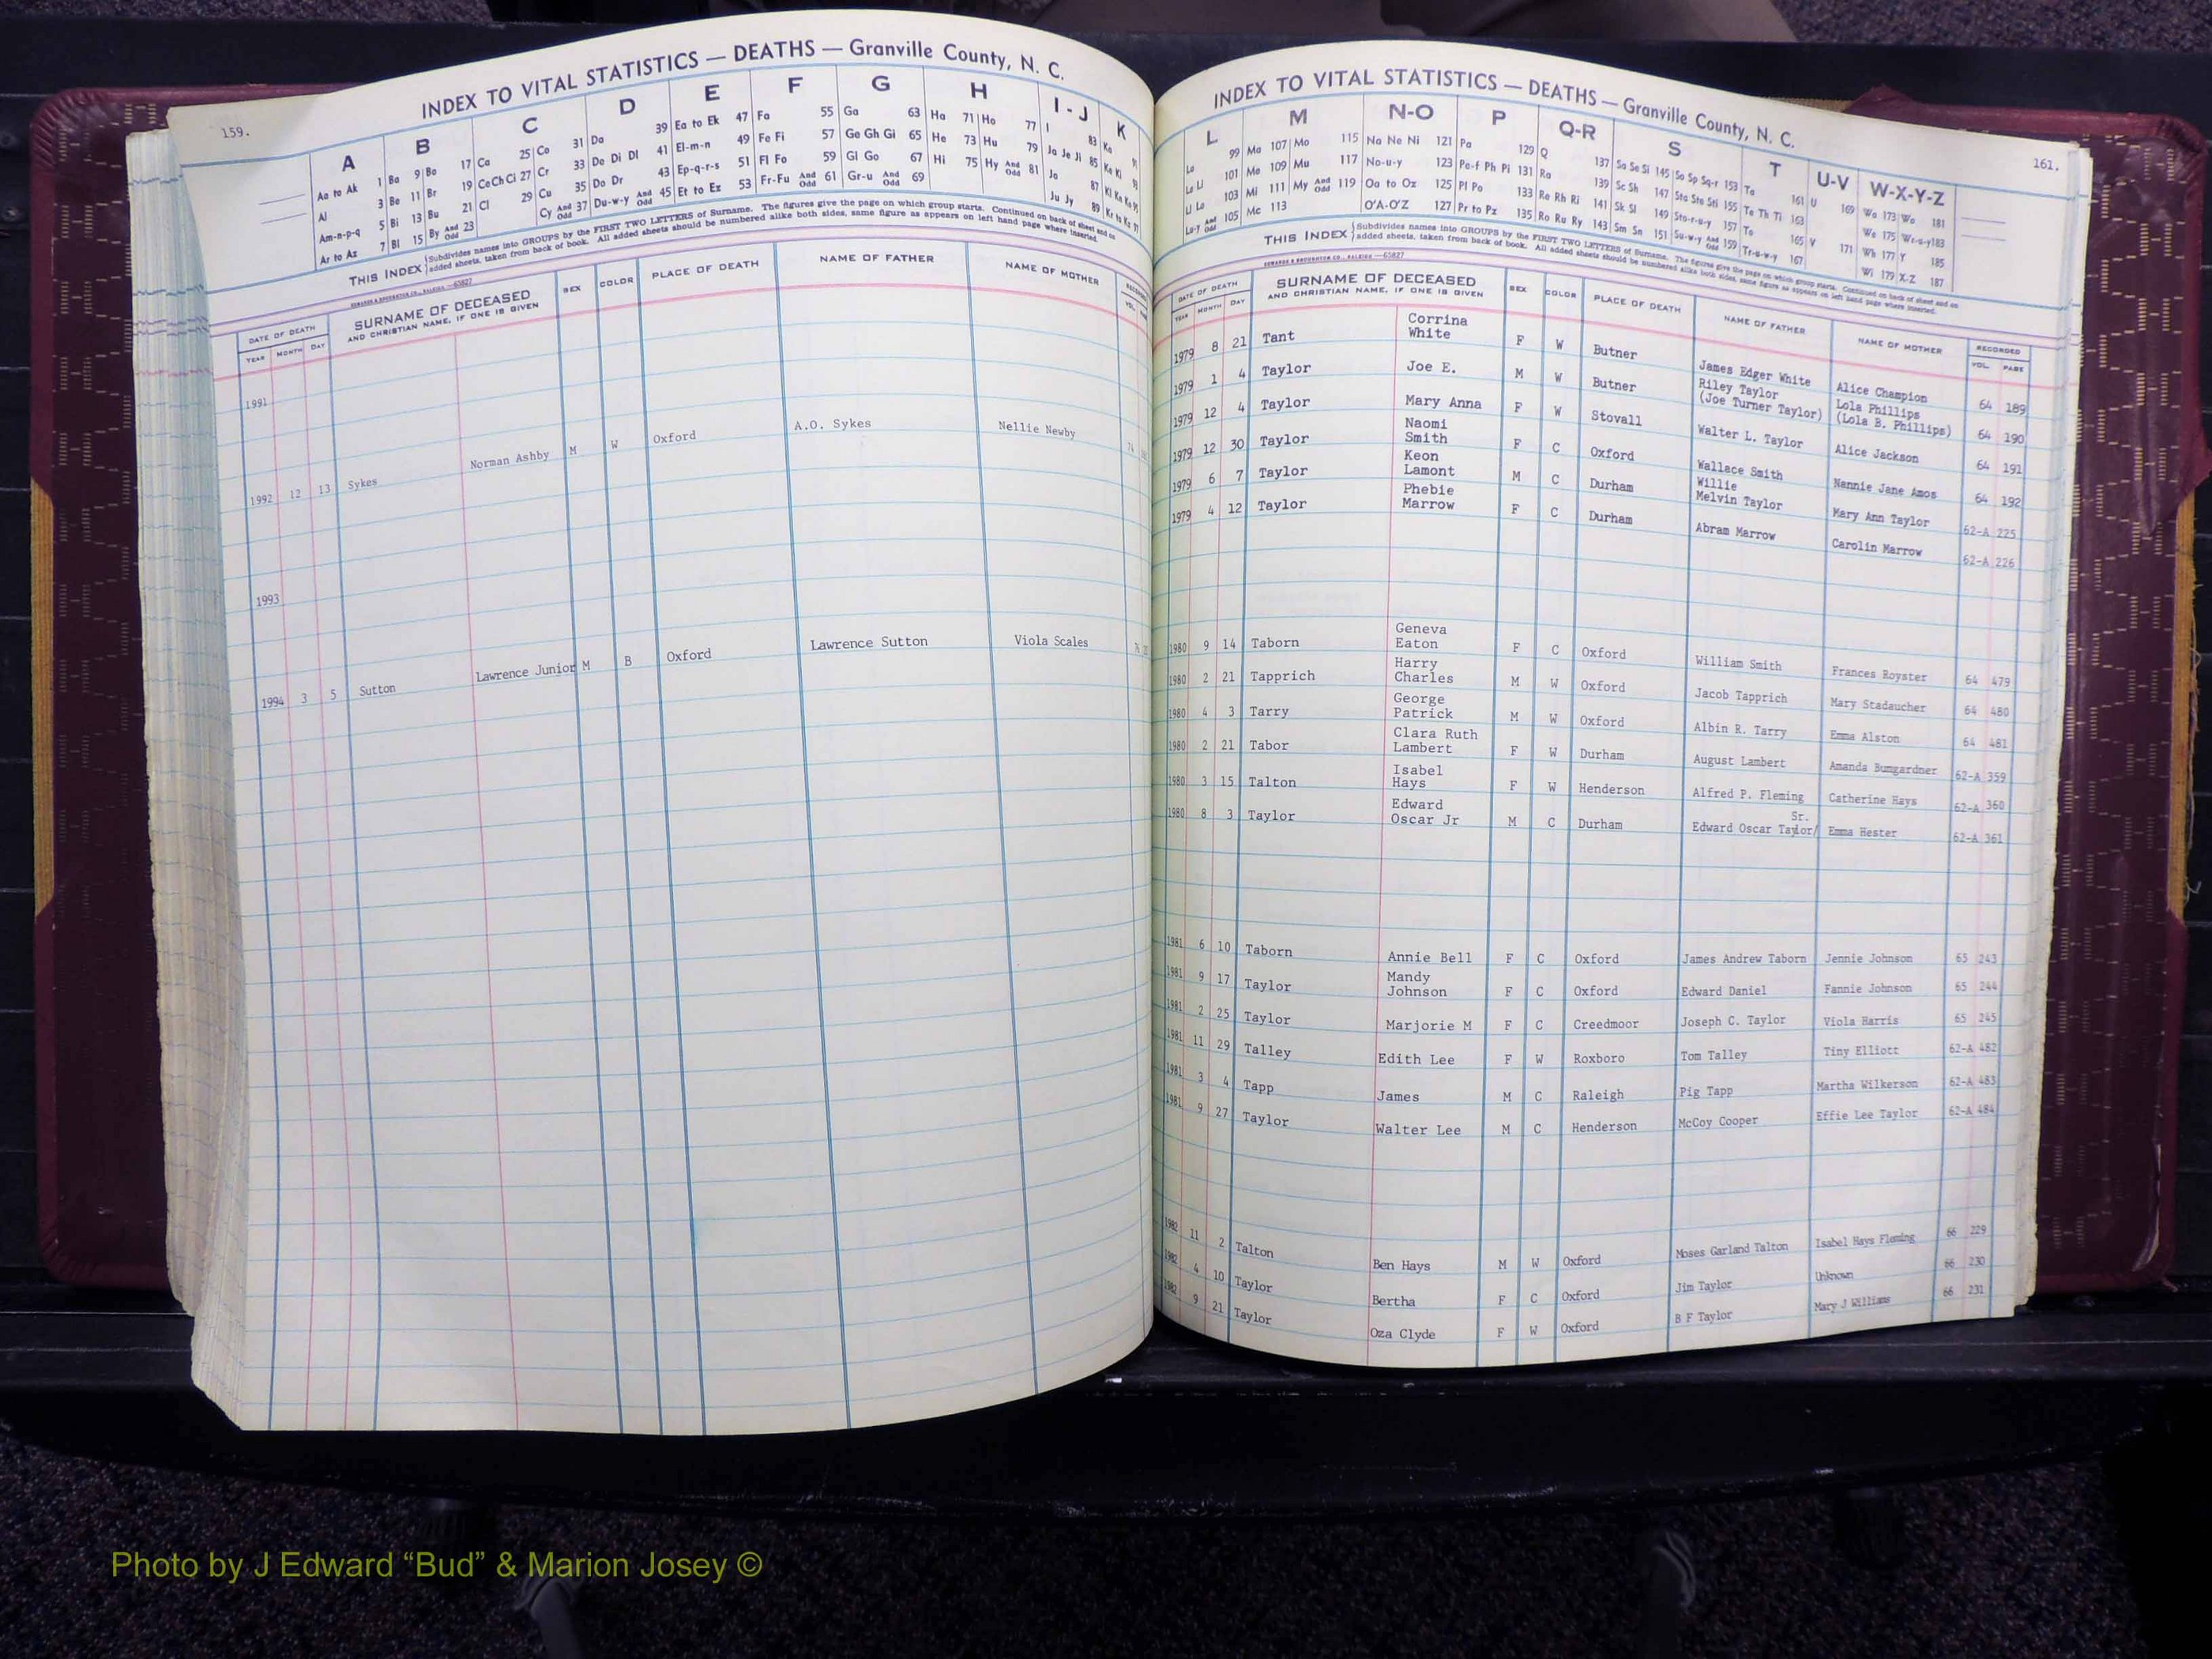 159.
INDEX TO VITAL STATISTICS — DEATHS — Granville County, N. C.
A B C D E F G H I - J K
Aa to Ak 1 Ba 9 Bo 17 Ca 25 Co 31 Da 39 Ea to Ek 47 Fa 55 Ga 63 Ha 71 Ho 77 I 83 Ka
Al 3 Be 11 Br 19 Ce Ch Ci 27 Cr 33 De Di Dl 41 El-m-n 49 Fe Fi 57 Ge Gh Gi 65 He 73 Hu 79 Ja Je Ji 85 Ke Ki
Am-n-p-q 5 Bi 13 Bu 21 Cl 29 Cu 35 Do Dr 43 Ep-q-r-s 51 Fl Fo 59 Gl Go 67 Hi 75 Hy And Odd 81 Jo 87
Ar to Az 7 Bl 15 By And Odd 23 Cy And Odd 37 Du-w-y And Odd 45 Et to Ez 53 Fr-Fu And Odd 61 Gr-u And Odd 69 Ju Jy 89
THIS INDEX Subdivides names into GROUPS by the FIRST TWO LETTERS of Surname. The figures give the page on which group starts. Continued on back of sheet and on
added sheets, taken from back of book. All added sheets should be numbered alike both sides, same figure as appears on left hand page where inserted.
DATE OF DEATH SURNAME OF DECEASED SEX COLOR PLACE OF DEATH NAME OF FATHER NAME OF MOTHER
YEAR MONTH DAY AND CHRISTIAN NAME, IF ONE IS GIVEN
1991
1992 12 13 Sykes Norman Ashby M W Oxford A.O. Sykes Nellie Newby
1993
1994 3 5 Sutton Lawrence Junior M B Oxford Lawrence Sutton Viola Scales
INDEX TO VITAL STATISTICS — DEATHS — Granville County, N. C.
161.
L M N-O P Q-R S T U-V W-X-Y-Z
La 99 Ma 107 Mo 115 Na Ne Ni 121 Pa 129 Q 137 Sa Se Si 145 So Sp Sq-r 153 Ta 161 U 169 Wa 173 Wo 181
Le Li 101 Me 109 Mu 117 No-u-y 123 Pe-f Ph Pi 131 Ra 139 Sc Sh 147 Sta Ste Sti 155 Te Th Ti 163 We 175 Wr-u-y 183
Ll Lo 103 Mi 111 My And Odd 119 Oa to Oz 125 Pl Po 133 Re Rh Ri 141 Sk Sl 149 Sto-r-u-y 157 To 165 V 171 Wh 177 Y 185
Lu-y And Odd 105 Mc 113 O'A-O'Z 127 Pr to Pz 135 Ro Ru Ry 143 Sm Sn 151 Su-w-y And Odd 159 Tr-u-w-y 167 Wi 179 X-Z 187
THIS INDEX Subdivides names into GROUPS by the FIRST TWO LETTERS of Surname. The figures give the page on which group starts. Continued on back of sheet and on
added sheets, taken from back of book. All added sheets should be numbered alike both sides, same figure as appears on left hand page where inserted.
DATE OF DEATH SURNAME OF DECEASED SEX COLOR PLACE OF DEATH NAME OF FATHER NAME OF MOTHER RECORDED
YEAR MONTH DAY AND CHRISTIAN NAME, IF ONE IS GIVEN VOL. PAGE
1979 8 21 Tant Corrina White F W Butner James Edger White Alice Champion 64 189
1979 1 4 Taylor Joe E. M W Butner Riley Taylor (Joe Turner Taylor) Lola Phillips (Lola B. Phillips) 64 190
1979 12 4 Taylor Mary Anna F W Stovall Walter L. Taylor Alice Jackson 64 191
1979 12 30 Taylor Naomi Smith F C Oxford Wallace Smith Nannie Jane Amos 64 192
1979 6 7 Taylor Keon Lamont M C Durham Willie Melvin Taylor Mary Ann Taylor 62-A 225
1979 4 12 Taylor Phebie Marrow F C Durham Abram Marrow Carolin Marrow 62-A 226
1980 9 14 Taborn Geneva Eaton F C Oxford William Smith Frances Royster 64 479
1980 2 21 Tapprich Harry Charles M W Oxford Jacob Tapprich Mary Stadaucher 64 480
1980 4 3 Tarry George Patrick M W Oxford Albin R. Tarry Emma Alston 64 481
1980 2 21 Tabor Clara Ruth Lambert F W Durham August Lambert Amanda Bumgardner 62-A 359
1980 3 15 Talton Isabel Hays F W Henderson Alfred P. Fleming Catherine Hays 62-A 360
1980 8 3 Taylor Edward Oscar Jr M C Durham Edward Oscar Taylor/ Sr. Emma Hester 62-A 361
1981 6 10 Taborn Annie Bell F C Oxford James Andrew Taborn Jennie Johnson 65 243
1981 9 17 Taylor Mandy Johnson F C Oxford Edward Daniel Fannie Johnson 65 244
1981 2 25 Taylor Marjorie M F C Creedmoor Joseph C. Taylor Viola Harris 65 245
1981 11 29 Talley Edith Lee F W Roxboro Tom Talley Tiny Elliott 62-A 482
1981 3 4 Tapp James M C Raleigh Pig Tapp Martha Wilkerson 62-A 483
1981 9 27 Taylor Walter Lee M C Henderson McCoy Cooper Effie Lee Taylor 62-A 484
1982 11 2 Talton Ben Hays M W Oxford Moses Garland Talton Isabel Hays Fleming 66 229
1982 4 10 Taylor Bertha F C Oxford Jim Taylor Unknown 66 230
1982 9 21 Taylor Oza Clyde F W Oxford B F Taylor Mary J Williams 66 231
Photo by J Edward “Bud” & Marion Josey ©